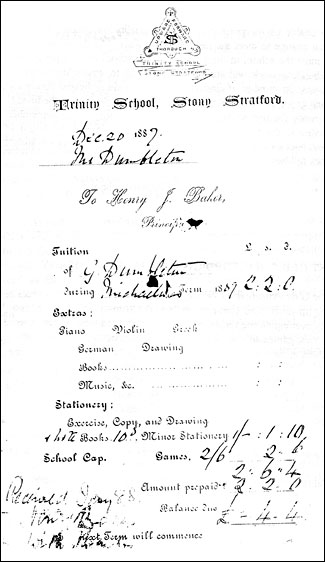 THOROUGH
TRINITY SCHOOL
STONY STRATFORD
Trinity School, Stony Stratford.
Dec. 20 1887.
Mr Dumbleton
To Henry J. Baker,
Tuition £ s. d.
of G Dumbleton
during Michaelmas Term 1887 2 : 2 . 0
Extras :
Piano Violin Greek
German Drawing
Books : :
Music, &c. : :
Stationery :
Exercise, Copy, and Drawing
& Note Books 10d Minor Stationery 1/- : 1 : 10
School Cap. Games. 2/6 2 - 6
2 - 6 - 4
Amount prepaid 2 2 0
Balance due £ - 4 - 4
Received
Next Term will commence